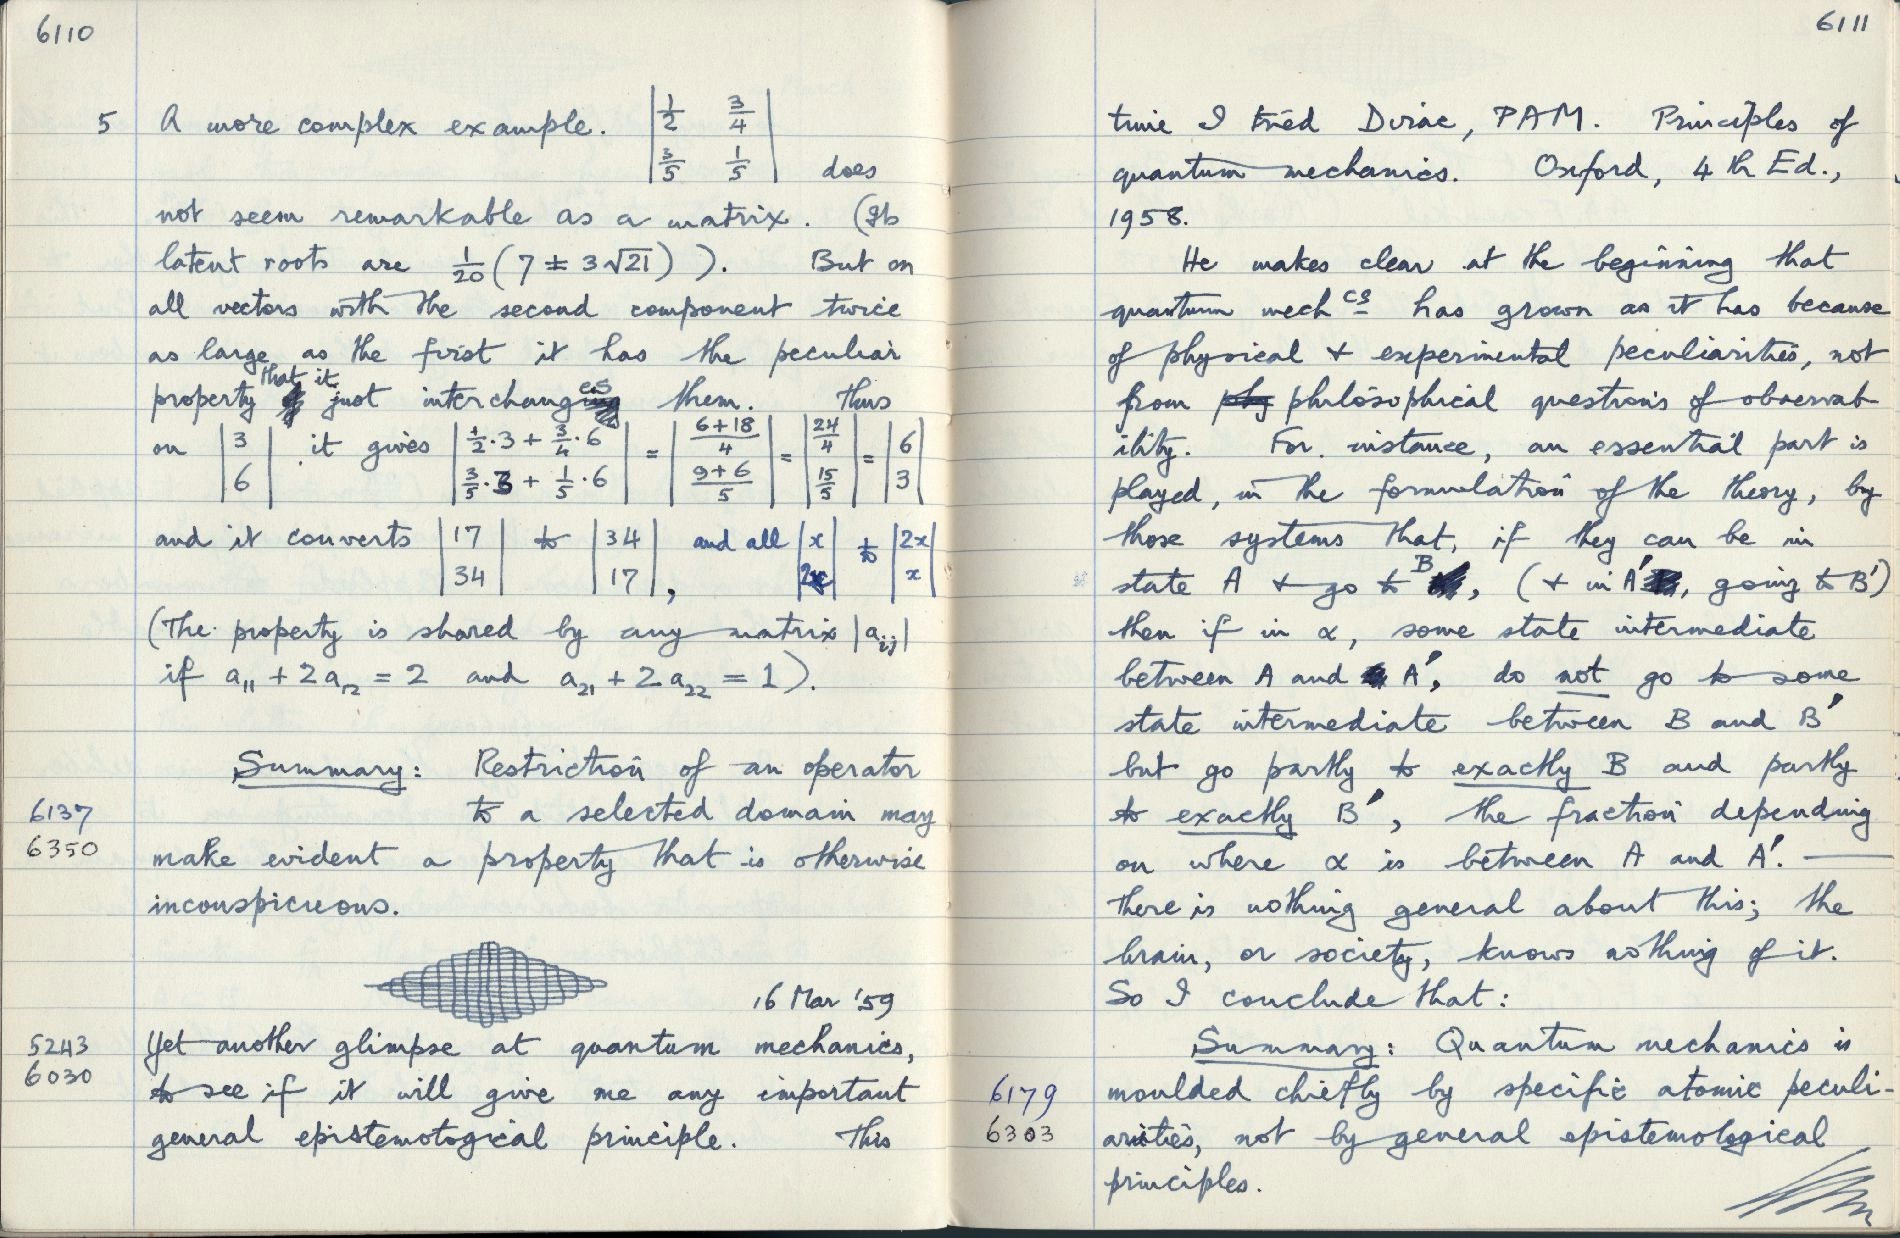 6110
5 A more complex example. | 1/2 3/4 |
| 3/5 1/5 | does
not seem remarkable as a matrix. (Its
latent roots are 1/20 (7 ± 3√21) ). But on
all vectors with the second component twice
as large as the first it has the peculiar
property that it just interchanges them. Thus
on | 3 | it gives | 1/2·3 + 3/4·6 | = | 6+18/4 | = | 24/4 | = | 6 |
| 6 | | 3/5·3 + 1/5·6 | | 9+6/5 | | 15/5 | | 3 |
and it converts | 17 | to | 34 |, and all | x | to | 2x |
| 34 | | 17 | | 2x | | x |
(The property is shared by any matrix |aij|
if a11 + 2a12 = 2 and a21 + 2a22 = 1).
Summary: Restriction of an operator
6137 to a selected domain may
6350 make evident a property that is otherwise
inconspicuous.
16 Mar '59
5243 Yet another glimpse at quantum mechanics,
6030 to see if it will give me any important
general epistemological principle. This
6111
time I tried Dirac, PAM. Principles of
quantum mechanics. Oxford, 4th Ed.,
1958.
He makes clear at the beginning that
quantum mechcs has grown as it has because
of physical + experimental peculiarities, not
from phy philosophical questions of observab-
ility. For instance, an essential part is
played, in the formulation of the theory, by
those systems that, if they can be in
state A + go to B, (+ in A', going to B')
then if in α, some state intermediate
between A and A', do not go to some
state intermediate between B and B'
but go partly to exactly B and partly
to exactly B', the fraction depending
on where α is between A and A'. —
There is nothing general about this; the
brain, or society, knows nothing of it.
So I conclude that:
Summary: Quantum mechanics is
6179 moulded chiefly by specific atomic peculi-
6303 arities, not by general epistemological
principles.